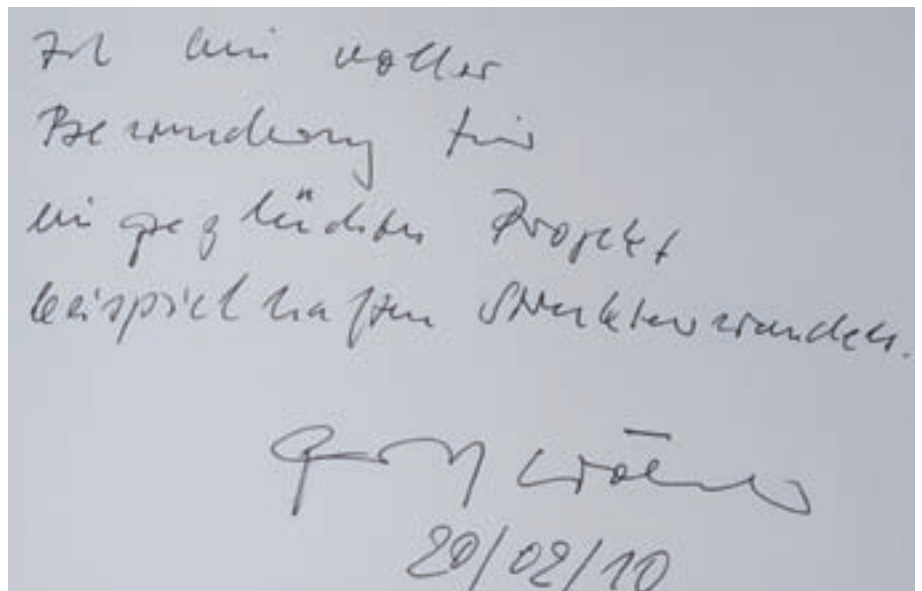 Ich bin voller
Bewunderung für
ein geglücktes Projekt
beispielhaften Strukturwandels.
20/02/10